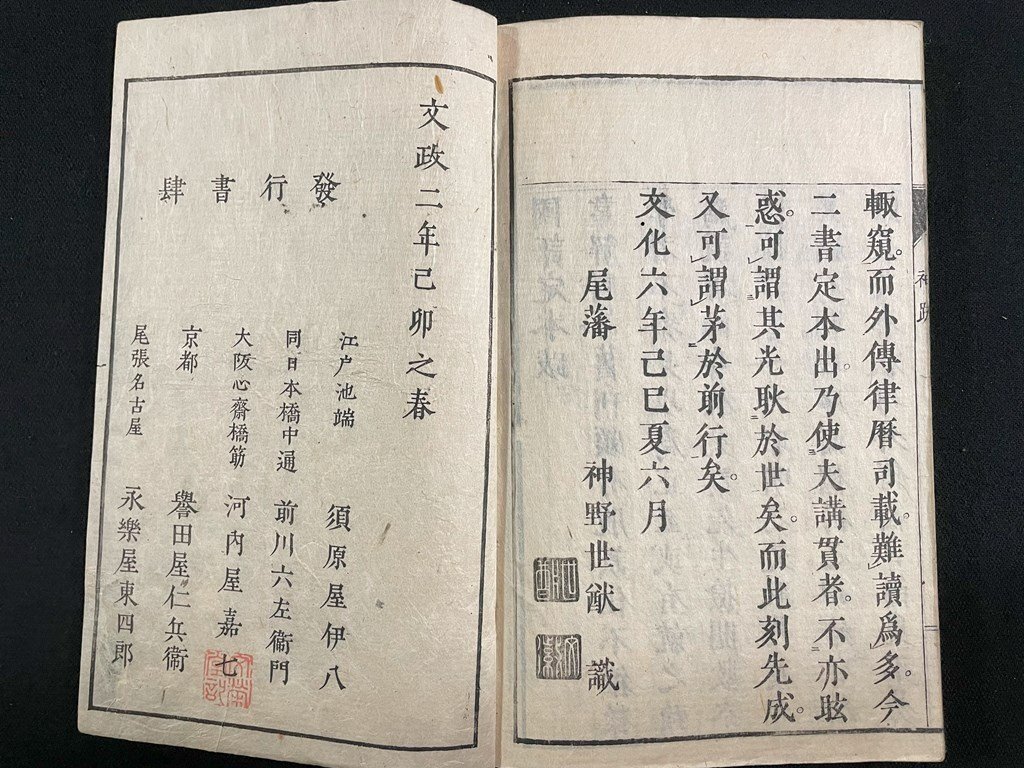 輙窺。而外傳律暦司載。難讀爲多。今
二書定本出。乃使夫講貫者。不亦眩
惑。可謂其光耿於世矣。而此刻先成。
又可謂茅於前行矣。
文化六年己巳夏六月
尾藩 神野世猷 識
文政二年己卯之春
發行書肆
江戸池端 須原屋伊八
同日本橋中通 前川六左衞門
大阪心齋橋筋 河内屋嘉七
京都 譽田屋仁兵衞
尾張名古屋 永樂屋東四郎